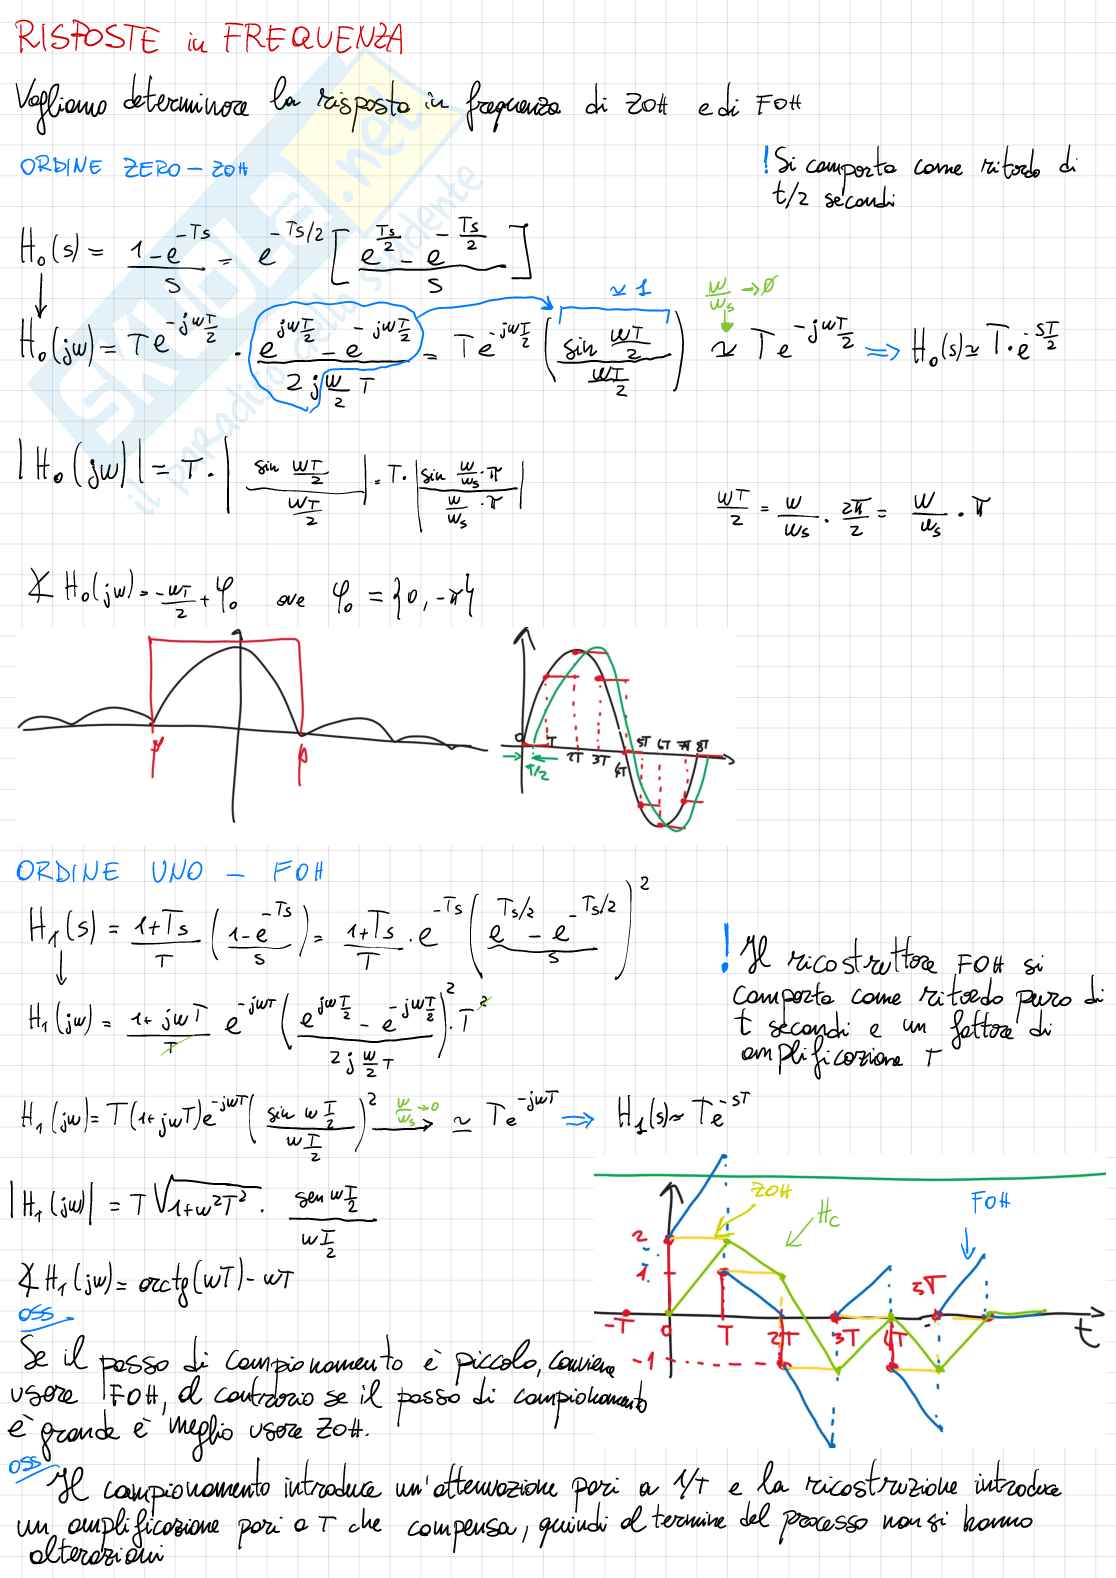 RISPOSTE in FREQUENZA
Vogliamo determinare la risposta in frequenza di ZOH e di FOH
ORDINE ZERO – ZOH
! Si comporta come ritardo di
t/2 secondi
H₀(s) = (1-e^{-Ts})/s = e^{-Ts/2} [(e^{Ts/2} - e^{-Ts/2})/s]
≃ 1
w/ws → 0
H₀(jw) = T e^{-jwT/2} · (e^{jwT/2} - e^{-jwT/2})/(2j w/2 T) = T e^{-jwT/2} (sin wT/2 / wT/2) ≃ T e^{-jwT/2} ⇒ H₀(s) ≃ T·e^{-sT/2}
|H₀(jw)| = T·|sin wT/2 / wT/2| = T·|sin w/ws·π / w/ws·π|
wT/2 = w/ws · 2π/2 = w/ws · π
∡ H₀(jw) = -wT/2 + φ₀ ove φ₀ = {0, -π}
0 T 2T 3T 4T 5T 6T 7T 8T
T/2
ORDINE UNO – FOH
H₁(s) = (1+Ts)/T ((1-e^{-Ts})/s)² = (1+Ts)/T · e^{-Ts} ((e^{Ts/2} - e^{-Ts/2})/s)²
! Il ricostruttore FOH si
comporta come ritardo puro di
t secondi e un fattore di
amplificazione T
H₁(jw) = (1+jwT)/T e^{-jwT} ((e^{jwT/2} - e^{-jwT/2})/(2j w/2 T))² · T²
H₁(jw) = T(1+jwT)e^{-jwT} (sin wT/2 / wT/2)² w/ws→0 ≃ T e^{-jwT} ⇒ H₁(s) ≃ T e^{-sT}
|H₁(jw)| = T √(1+w²T²) · sen wT/2 / wT/2
∡ H₁(jw) = arctg(wT) - wT
ZOH
Hc
FOH
2
1
-1
-T 0 T 2T 3T 4T 5T t
OSS
Se il passo di campionamento è piccolo, conviene
usare FOH, al contrario se il passo di campionamento
è grande è meglio usare ZOH.
OSS
Il campionamento introduce un'attenuazione pari a 1/T e la ricostruzione introduce
un amplificazione pari a T che compensa, quindi al termine del processo non si hanno
alterazioni
SKUOLA.net
il paradiso dello studente